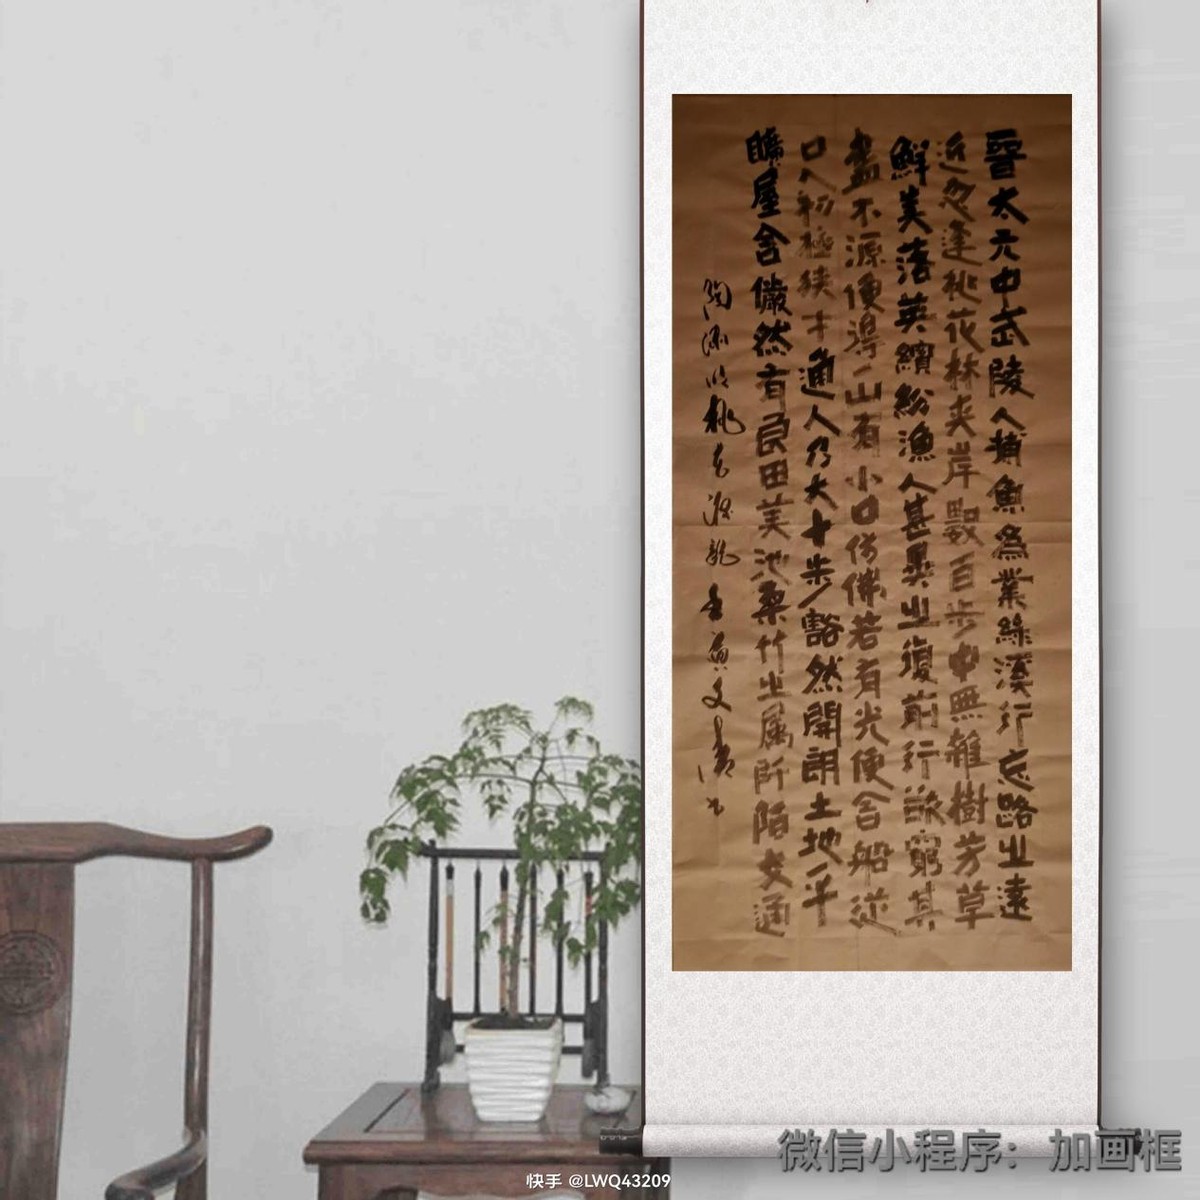 晉太元中武陵人捕魚為業緣溪行忘路之遠
近忽逢桃花林夾岸數百步中無雜樹芳草
鮮美落英繽紛漁人甚異之復前行欲窮其
盡水源便得一山有小口仿佛若有光便舍船從
口入初極狹才通人乃大十步豁然開朗土地平
曠屋舍儼然有良田美池桑竹之属阡陌交通
陶渊明桃花源
微信小程序：加画框
快手 @LWQ43209